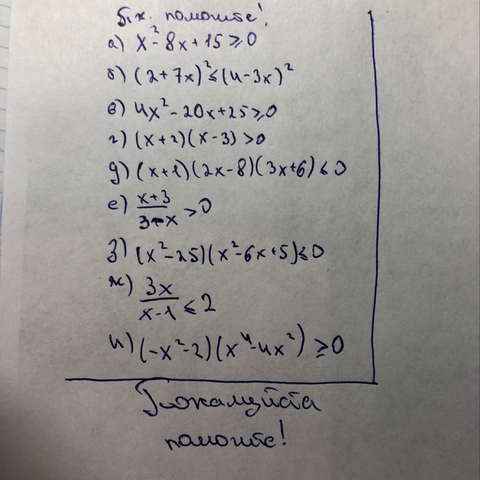 б.х. помогите!
а) x² - 8x + 15 ≥ 0
б) (2 + 7x)² ≤ (4 - 3x)²
в) 4x² - 20x + 25 ≥ 0
г) (x + 2)(x - 3) > 0
д) (x + 1)(2x - 8)(3x + 6) ≤ 0
е) x + 3 / 3 - x > 0
з) (x² - 25)(x² - 6x + 5) ≤ 0
ж) 3x / x - 1 ≤ 2
и) (-x² - 2)(x⁴ - 4x²) ≥ 0
Пожалуйста
помогите!